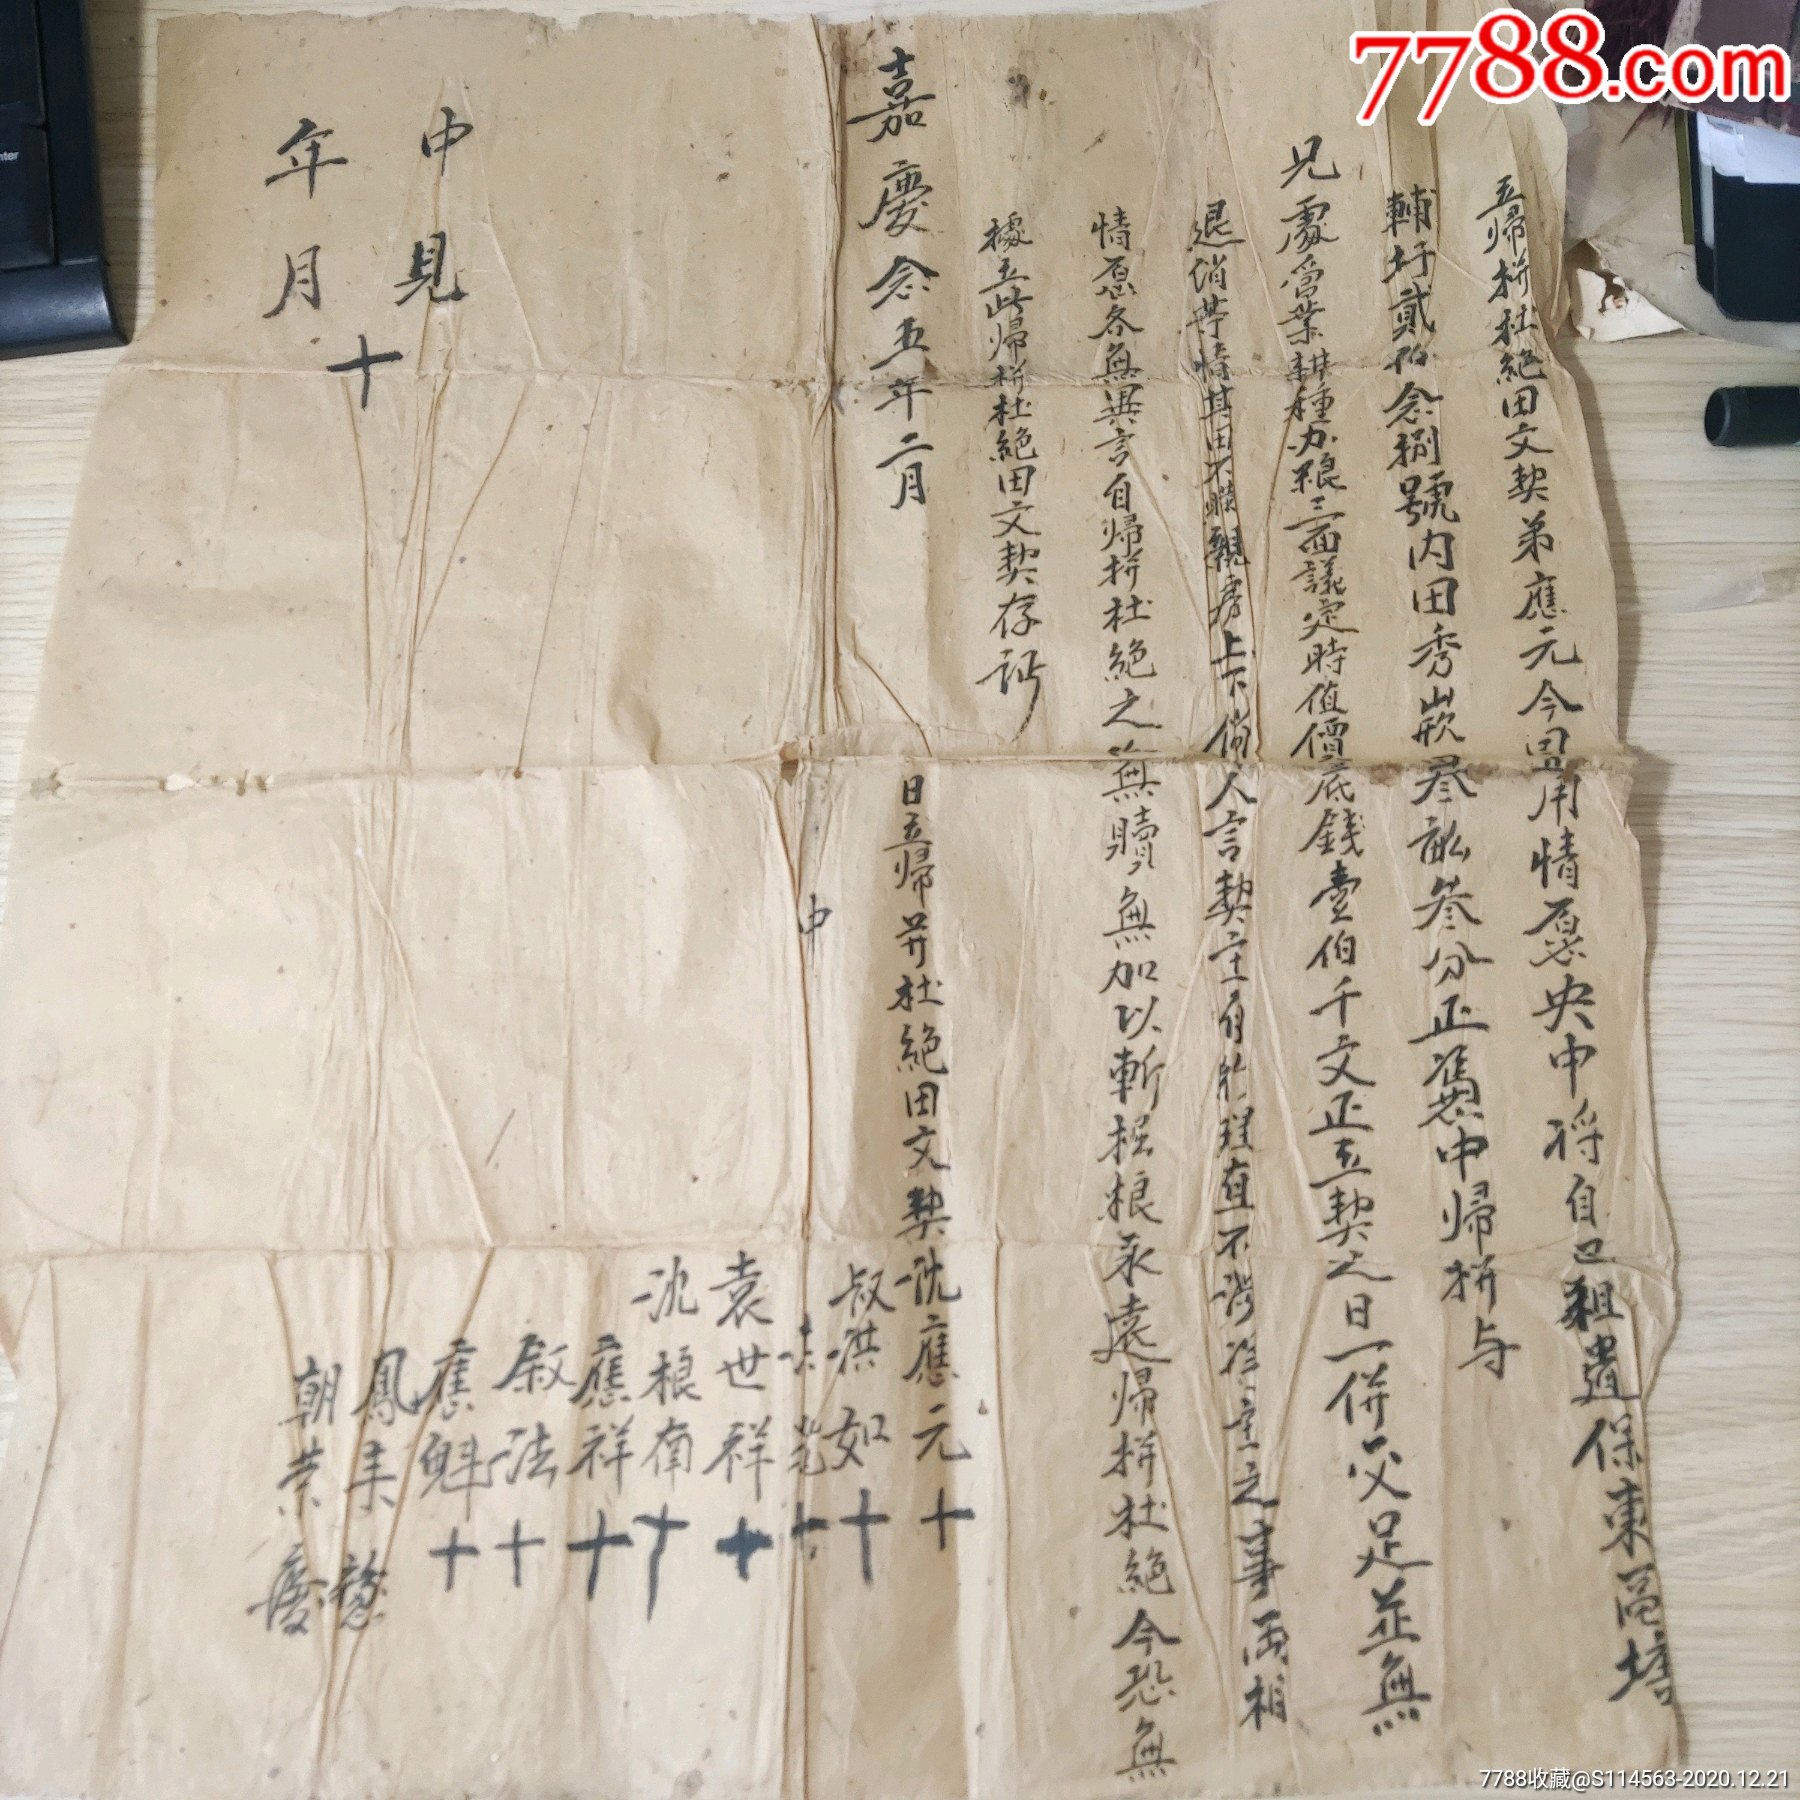 立歸拼杜絕田文契弟應元今因用情愿央中將自己祖遺保東區塘
輔圩貳拾念捌號內田秀嵌叁畝叁分正憑中歸拼与
兄處為業耕種办粮三面議定時值價底錢壹伯千文正立契之日一併收足並無
退俏等情其田不瞒親房上下倘人言契主自行理直不涉業主之事両相
情愿各無異言自歸拼杜絕之無贖無加以斬根永遠歸拼杜絕今恐無
據立此歸拼杜絕田文契存証
嘉慶念五年二月
日立歸并杜絕田文契沈應元十
中
叔洪如十
袁世祥十
沈根南十
應祥十
叙法十
應魁十
鳳
朝 慶
中見
十
年月
7788.com
7788收藏@S114563-2020.12.21